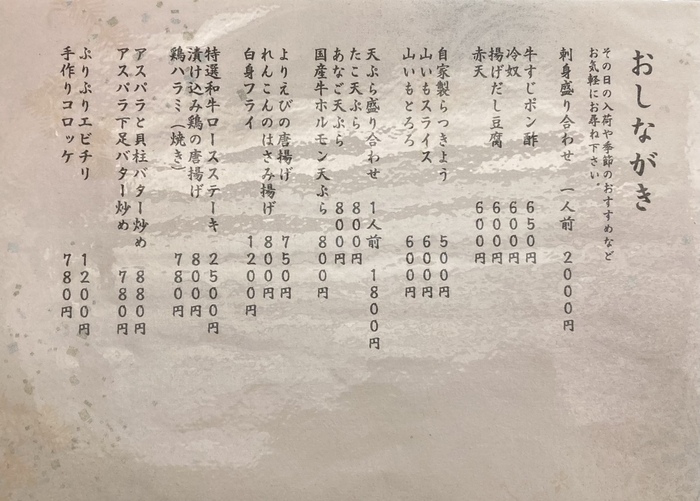 おしながき
その日の入荷や季節のおすすめなど
お気軽にお尋ね下さい。
刺身盛り合わせ 一人前 2000円
牛すじポン酢 650円
冷奴 600円
揚げだし豆腐 600円
赤天 600円
自家製らっきょう 500円
山いもスライス 600円
山いもとろろ 600円
天ぷら盛り合わせ 1人前 1800円
たこ天ぷら 800円
あなご天ぷら 800円
国産牛ホルモン天ぷら 800円
よりえびの唐揚げ 750円
れんこんのはさみ揚げ 800円
白身フライ 1200円
特選和牛ロースステーキ 2500円
漬け込み鶏の唐揚げ 800円
鶏ハラミ（焼き） 780円
アスパラと貝柱バター炒め 880円
アスパラ下足バター炒め 780円
ぷりぷりエビチリ 1200円
手作りコロッケ 780円